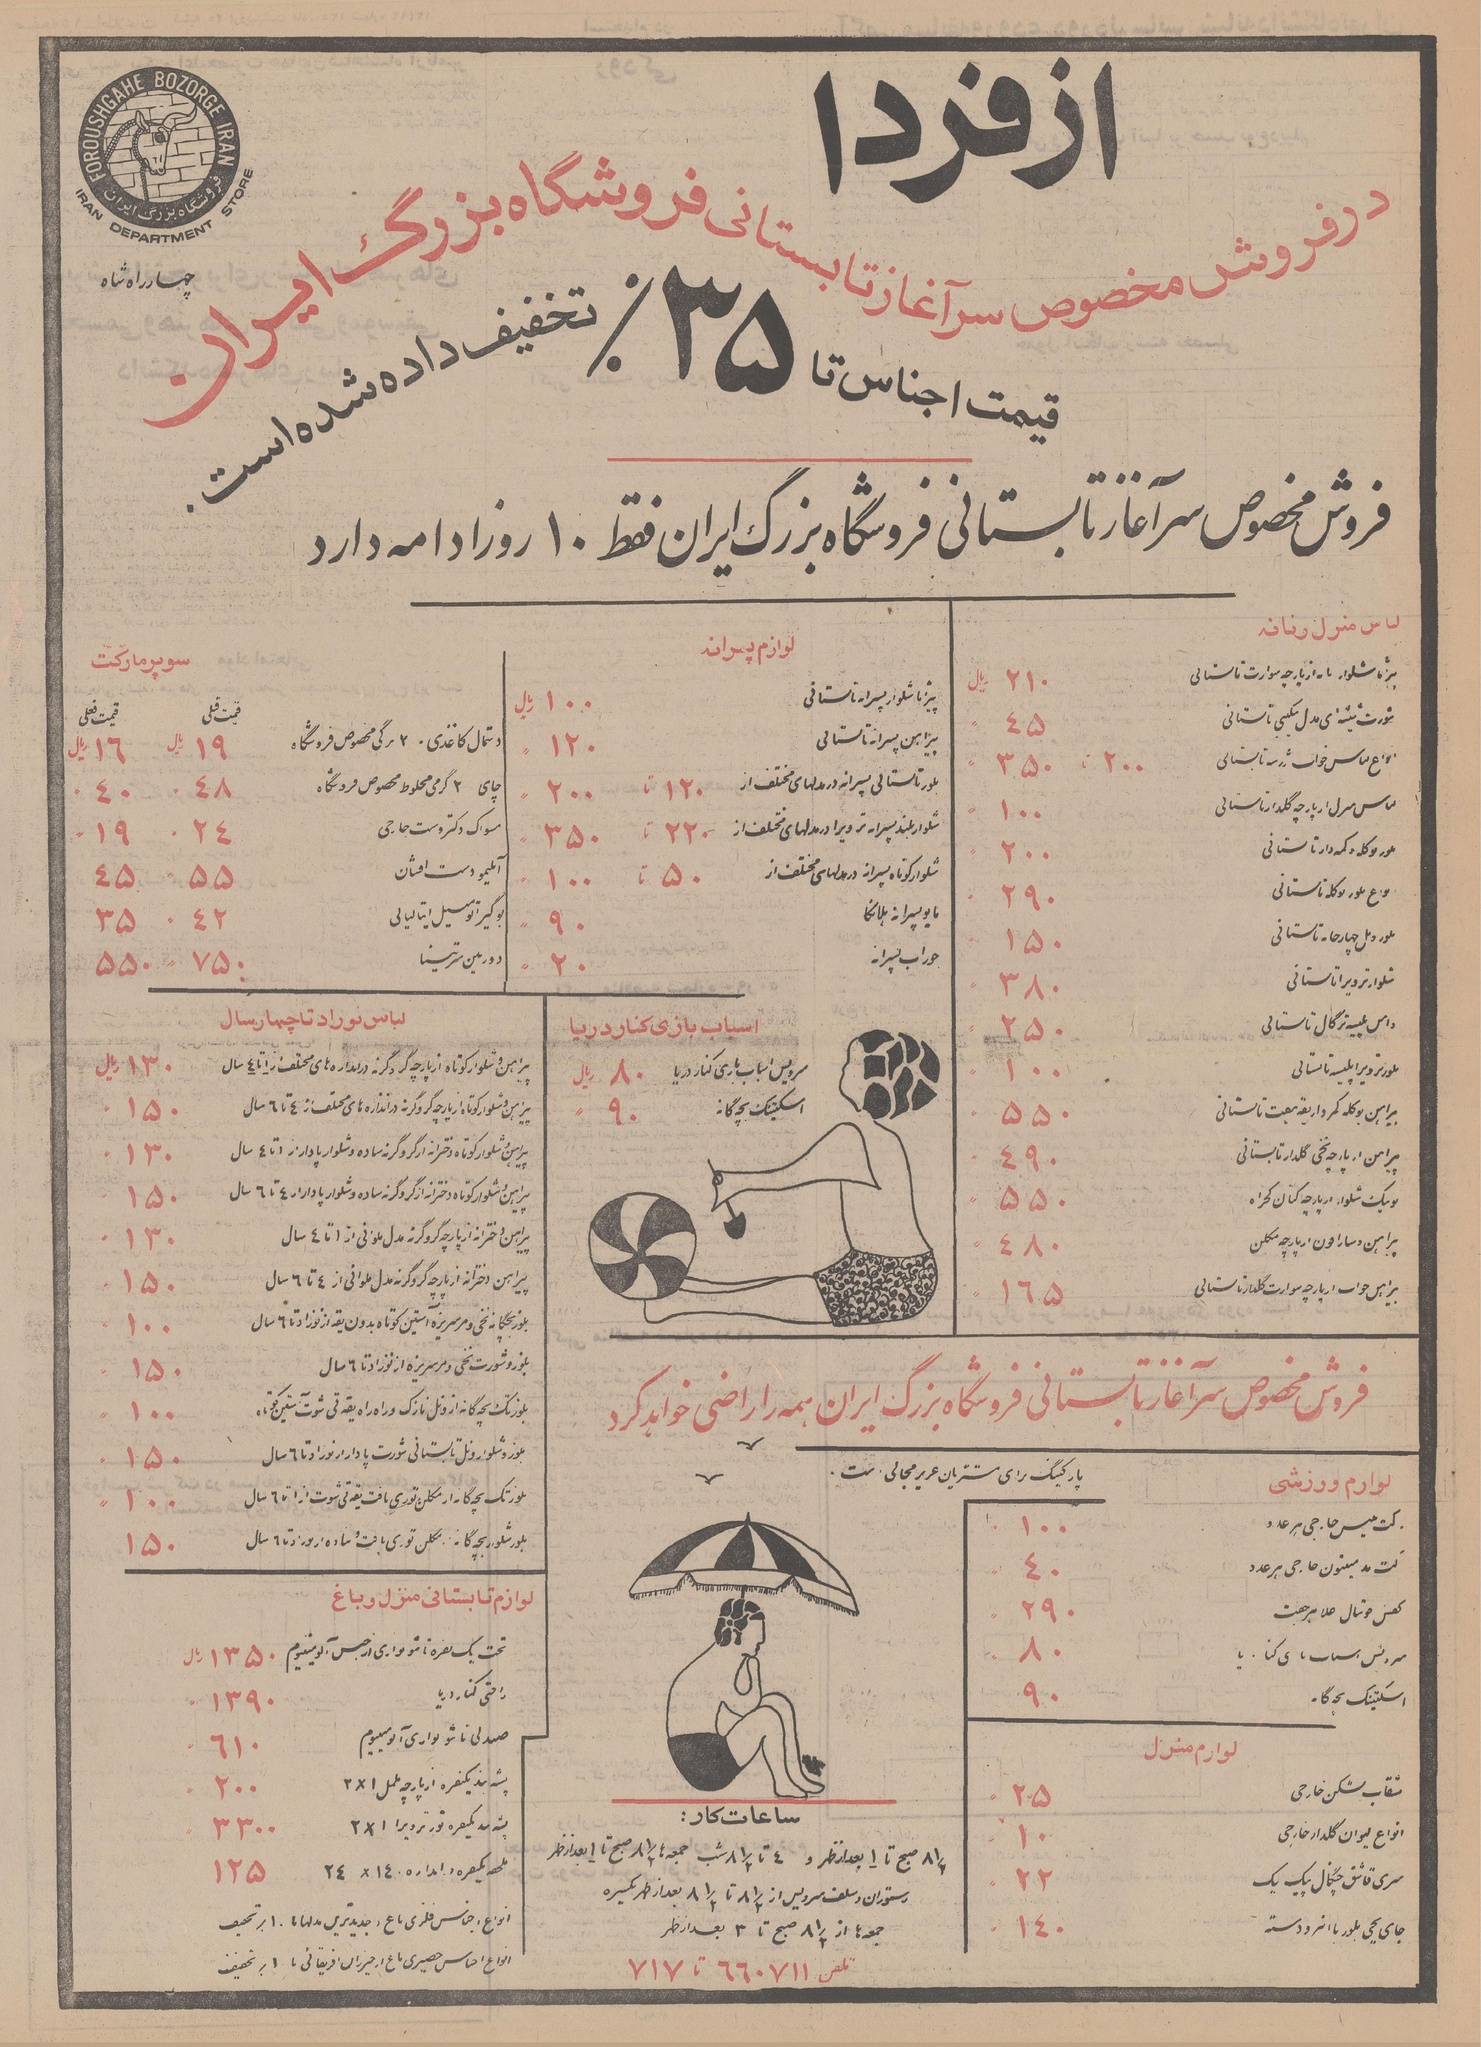 FOROUSHGAHE BOZORGE IRAN
فروشگاه بزرگ ایران
IRAN DEPARTMENT STORE
چهارراه شاه
از فردا
در فروش مخصوص سرآغاز تابستانی فروشگاه بزرگ ایران
قیمت اجناس تا ۳۵٪ تخفیف داده شده است.
فروش مخصوص سرآغاز تابستانی فروشگاه بزرگ ایران فقط ۱۰ روز ادامه دارد
لباس منزل زنانه
پیژاما شلوار از پارچه سوارت تابستانی ۲۱۰ ریال
شورت شیشه‌ای مدل بیکینی تابستانی ۴۵
انواع لباس خواب تابستانی ۲۰۰ تا ۳۵۰
لباس منزل از پارچه گلدار تابستانی ۱۰۰
بلوز بوکله دکمه دار تابستانی ۲۰۰
بلوز بوکله تابستانی ۲۹۰
بلوز تابستانی ۱۵۰
شلوار ترویرا تابستانی ۳۸۰
دامن پلیسه ترگال تابستانی ۲۵۰
بلوز ترویرا پلیسه تابستانی ۱۰۰
پیراهن بوکله کمردار تابستانی ۵۵۰
پیراهن از پارچه نخی گلدار تابستانی ۴۹۰
شلوار از پارچه کتان ۵۵۰
پیراهن و سارافون از پارچه مکلن ۴۸۰
پیراهن خواب از پارچه سوارت گلدار تابستانی ۱۶۵
لوازم پسرانه
پیژاما شلوار پسرانه تابستانی ۱۰۰ ریال
پیراهن پسرانه تابستانی ۱۲۰
بلوز تابستانی پسرانه در مدلهای مختلف از ۱۲۰ تا ۲۰۰
شلوار بلند پسرانه ترویرا در مدلهای مختلف از ۲۲۰ تا ۳۵۰
شلوار کوتاه پسرانه در مدلهای مختلف از ۵۰ تا ۱۰۰
مایو پسرانه هلانکا ۹۰
جوراب پسرانه ۲۰
سوپرمارکت
قیمت قبلی قیمت فعلی
دستمال کاغذی ۲۰ برگی مخصوص فروشگاه ۱۹ ریال ۱۶ ریال
چای گرمی مخلوط مخصوص فروشگاه ۴۸ ۴۰
مسواک دکتر وست خارجی ۲۴ ۱۹
آبلیمو دست افشان ۵۵ ۴۵
بوگیر اتومبیل ایتالیائی ۴۲ ۳۵
دوربین ۷۵۰ ۵۵۰
اسباب بازی کنار دریا
سرویس اسباب بازی کنار دریا ۸۰ ریال
اسکیتینگ بچه گانه ۹۰
لباس نوزاد تا چهار سال
پیراهن و شلوار کوتاه از پارچه گروگرنه در اندازه های مختلف از ۱ تا ۴ سال ۱۳۰ ریال
پیراهن و شلوار کوتاه از پارچه گروگرنه در اندازه های مختلف از ۴ تا ۶ سال ۱۵۰
پیراهن و شلوار کوتاه دخترانه از گروگرنه ساده و شلوار پادار از ۱ تا ۴ سال ۱۳۰
پیراهن و شلوار کوتاه دخترانه از گروگرنه ساده و شلوار پادار از ۴ تا ۶ سال ۱۵۰
پیراهن دخترانه از پارچه گروگرنه مدل ملوانی از ۱ تا ۴ سال ۱۳۰
پیراهن دخترانه از پارچه گروگرنه مدل ملوانی از ۴ تا ۶ سال ۱۵۰
بلوز بچگانه نخی و مرسریزه آستین کوتاه بدون یقه از نوزاد تا ۶ سال ۱۰۰
بلوز و شورت نخی و مرسریزه از نوزاد تا ۶ سال ۱۵۰
بلوز تک بچه گانه از ونل نازک و راه راه یقه تی شوت آستین کوتاه ۱۰۰
بلوز و شلوار ونل تابستانی شورت پادار از نوزاد تا ۶ سال ۱۵۰
بلوز تک بچه گانه از مکلن توری بافت یقه تی شوت از ۱ تا ۶ سال ۱۰۰
بلوز شلوار بچه گانه مکلن توری بافت و ساده از نوزاد تا ۶ سال ۱۵۰
فروش مخصوص سرآغاز تابستانی فروشگاه بزرگ ایران همه را راضی خواهد کرد
پارکینگ برای مشتریان عزیز مجانی است.
لوازم ورزشی
راکت تنیس خارجی هر عدد ۱۰۰
راکت بدمینتون خارجی هر عدد ۴۰
کفش فوتبال هر جفت ۲۹۰
سرویس اسباب بازی کنار دریا ۸۰
اسکیتینگ بچه گانه ۹۰
لوازم منزل
بشقاب نشکن خارجی ۲۵
انواع لیوان گلدار خارجی ۱۰
سری قاشق چنگال پیک نیک ۲۲
جای یخی بلور با انبر و دسته ۱۴۰
لوازم تابستانی منزل و باغ
تخت یک نفره تاشو نواری از جنس آلومینیوم ۱۳۵۰ ریال
راحتی کنار دریا ۱۳۹۰
صندلی تاشو نواری آلومینیوم ۶۱۰
پشه بند یکنفره از پارچه ململ ۱×۲ ۲۰۰
پشه بند یکنفره تور ترویرا ۱×۲ ۳۳۰۰
ملحفه یکنفره در اندازه ۱۴۰ × ۲۴ ۱۲۵
انواع اجناس فلزی باغ در جدیدترین مدلها با ۱۰٪ تخفیف
انواع اجناس حصیری باغ از خیزران افریقائی با ۱۰٪ تخفیف
ساعات کار:
۸½ صبح تا ۱ بعدازظهر و ۴ تا ۸½ شب جمعه ها ۸½ صبح تا ۱ بعدازظهر
رستوران و سلف سرویس از ۸½ تا ۸½ بعدازظهر یکسره
جمعه ها از ۸½ صبح تا ۳ بعدازظهر
تلفن ۶۶۰۷۱۱ تا ۷۱۷